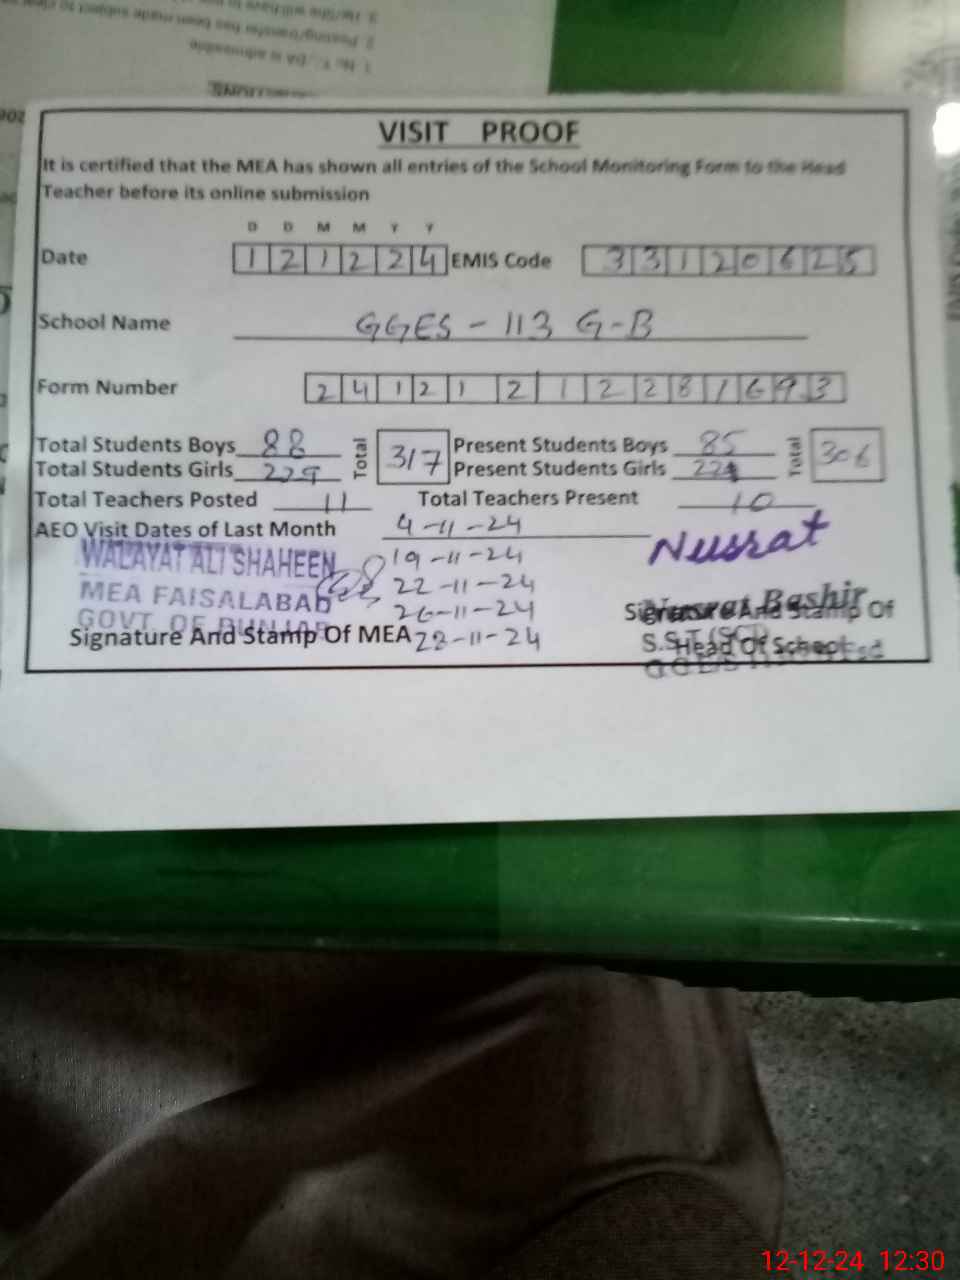 VISIT PROOF
It is certified that the MEA has shown all entries of the School Monitoring Form to the Head
Teacher before its online submission
D D M M Y Y
Date 1 2 1 2 2 4 EMIS Code 3 3 1 2 0 6 2 5
School Name GGES - 113 G-B
Form Number 2 4 1 2 1 2 1 2 2 8 1 6 9 3
Total Students Boys 88 Total 317 Present Students Boys 85 Total 306
Total Students Girls 229 Present Students Girls 221
Total Teachers Posted 11 Total Teachers Present 10
AEO Visit Dates of Last Month 4-11-24
WALAYAT ALI SHAHEEN 19-11-24 Nusrat
MEA FAISALABAD 22-11-24 Nusrat Bashir
GOVT. OF PUNJAB 26-11-24 Signature And Stamp Of
Signature And Stamp Of MEA 28-11-24 S.S.T (SC) Head Of School
12-12-24 12:30